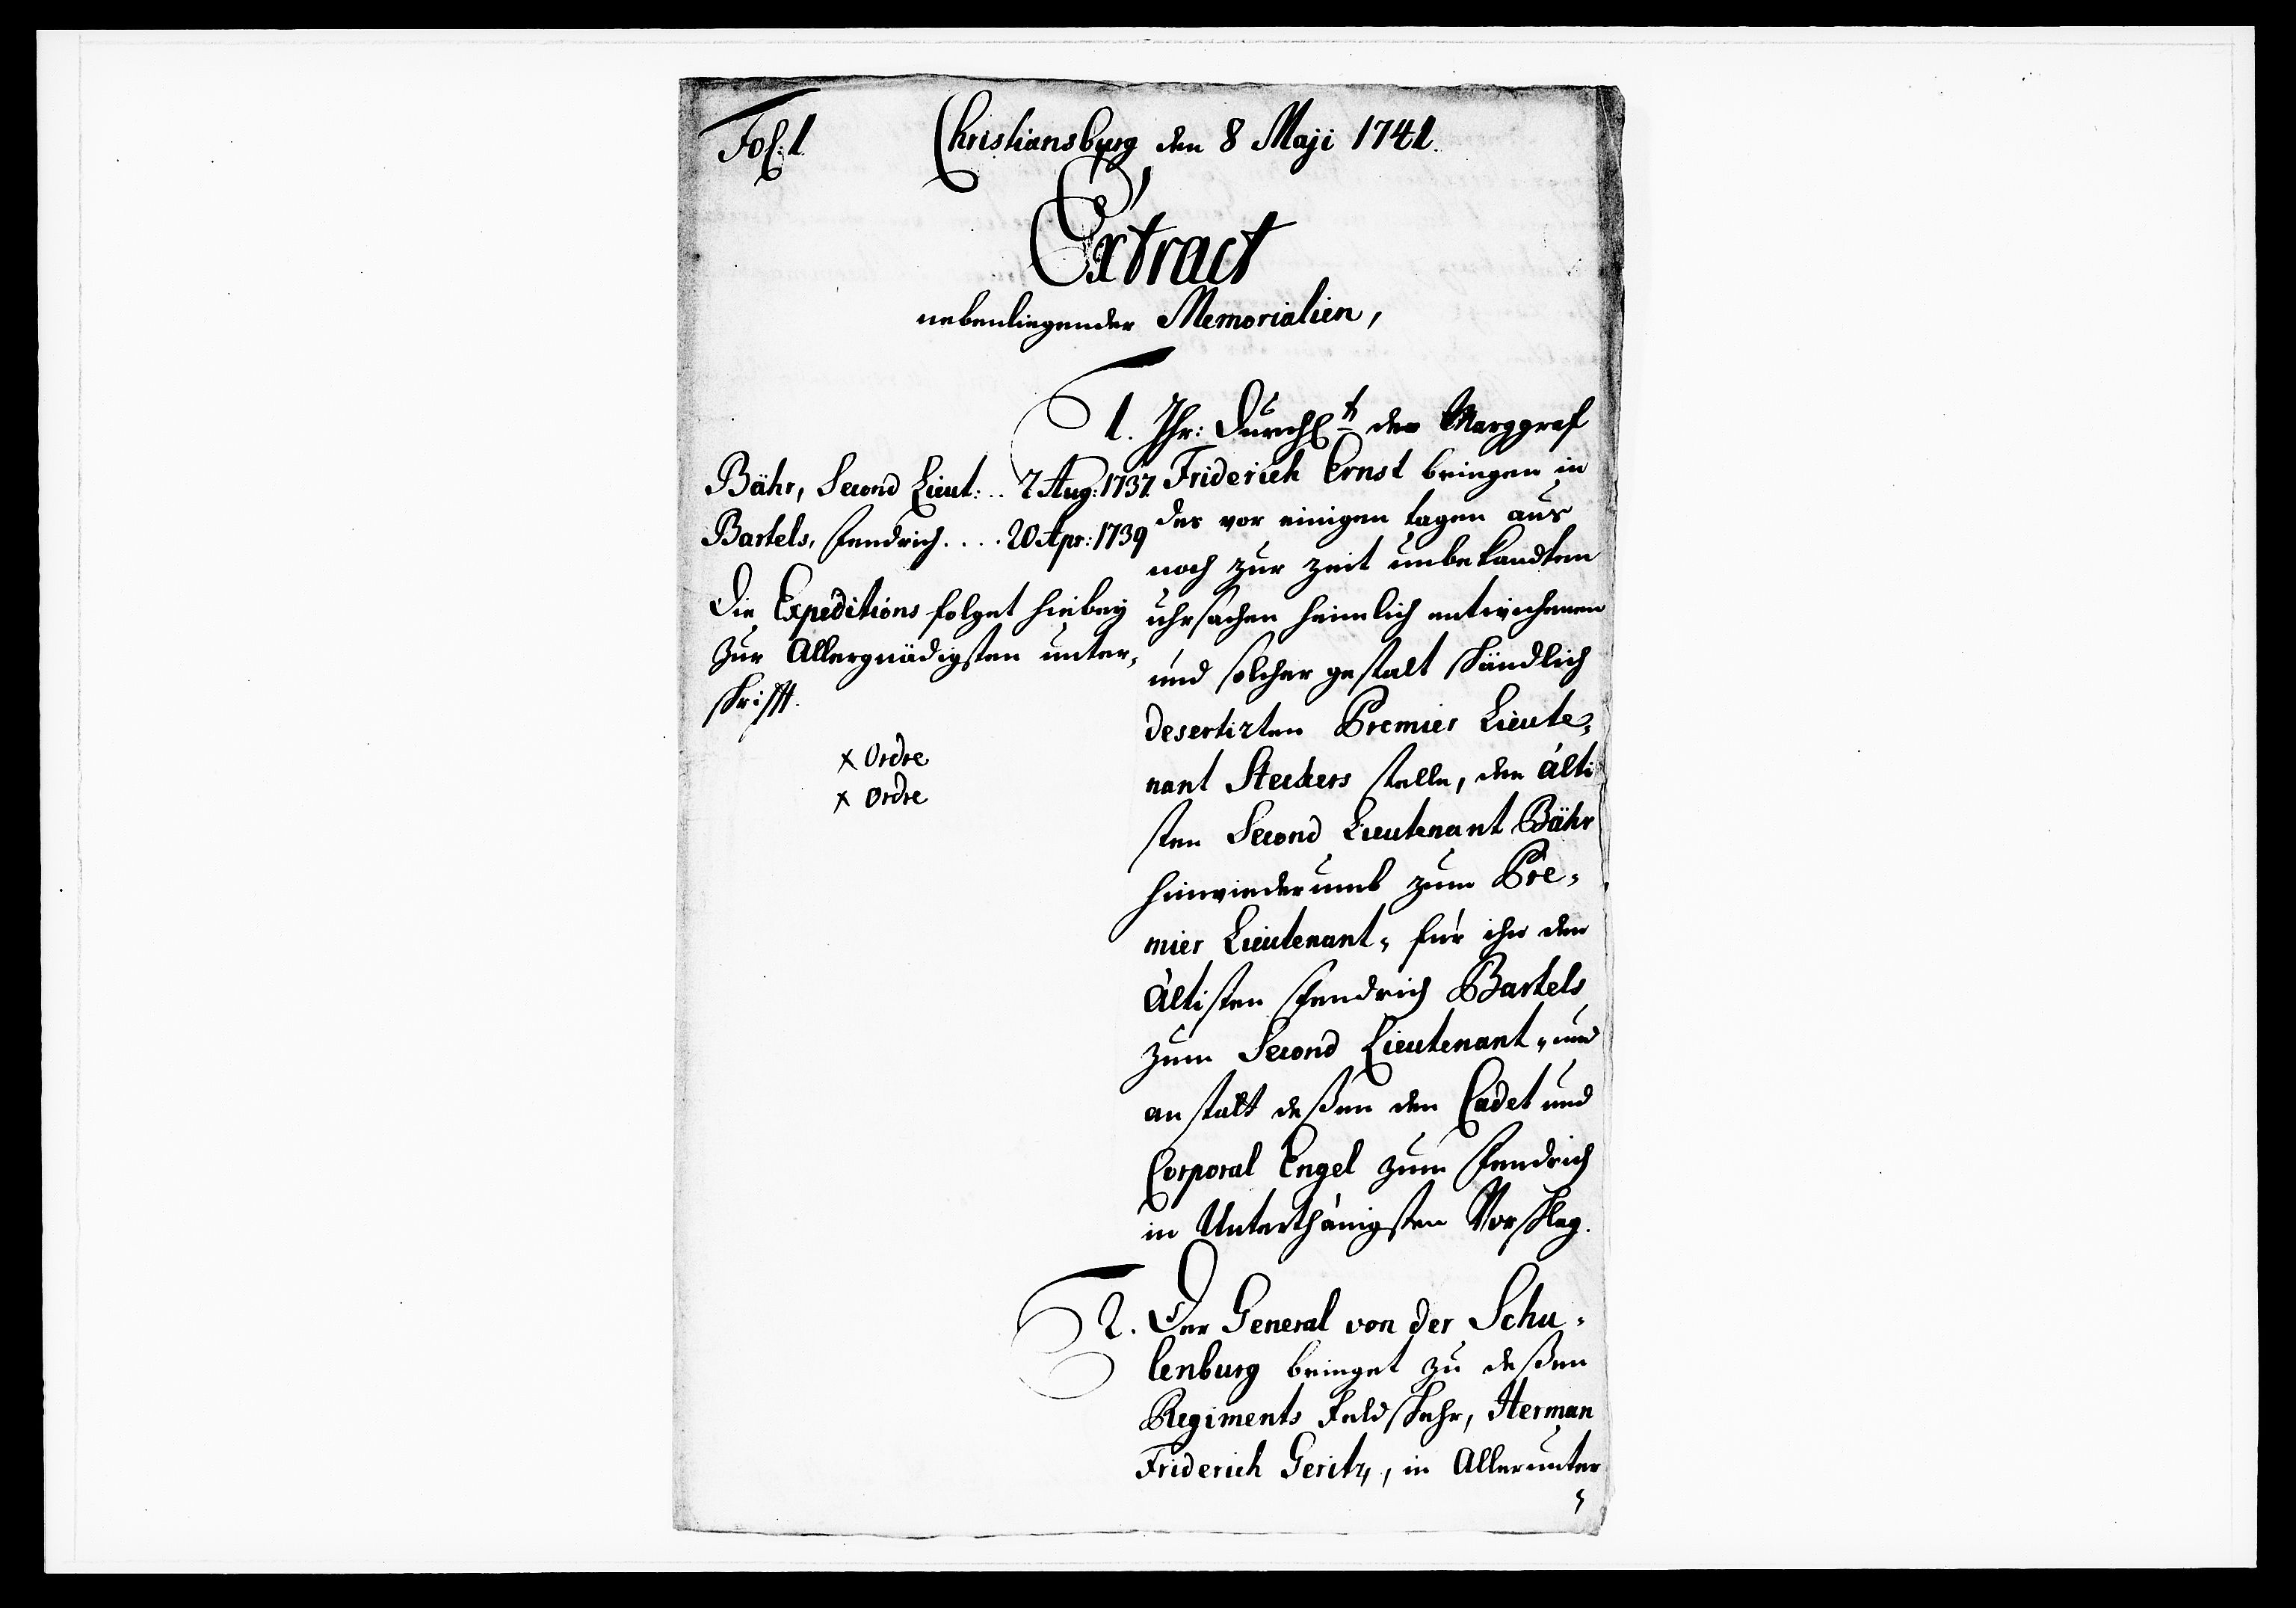 Fol: 1
Christiansburg den 8 Maji 1741.
Extract
nebenliegender Memorialien,
1. Ihr: Durchl^t der Marggraf
Friderich Ernst bringen in
des vor einigen tagen aus
noch zur zeit unbekandten
uhrsachen heimlich entwichenen
und solcher gestalt schändlich
desertirten Premier Lieute-
nant Steckers stelle, den älti
sten Second Lieutenant Bähr
hinwiederumb zum Pre-
mier Lieutenant, für ihn den
ältisten Fendrich Bartels
zum Second Lieutenant, und
anstatt deßen den Cadet und
Corporal Engel zum Fendrich
in Unterthänigsten Vorschlag.
Bähr, Second Lieut: .. 7 Aug: 1737.
Bartels, Fendrich .... 20 Apr: 1739
Die Expeditions folget hiebey
zur Allergnädigsten unter-
schrifft.
x Ordre
x Ordre
2. Der General von der Schu-
lenburg bringet zu deßen
Regiments Feldschehr, Herman
Friderich Geritz, in Allerunter